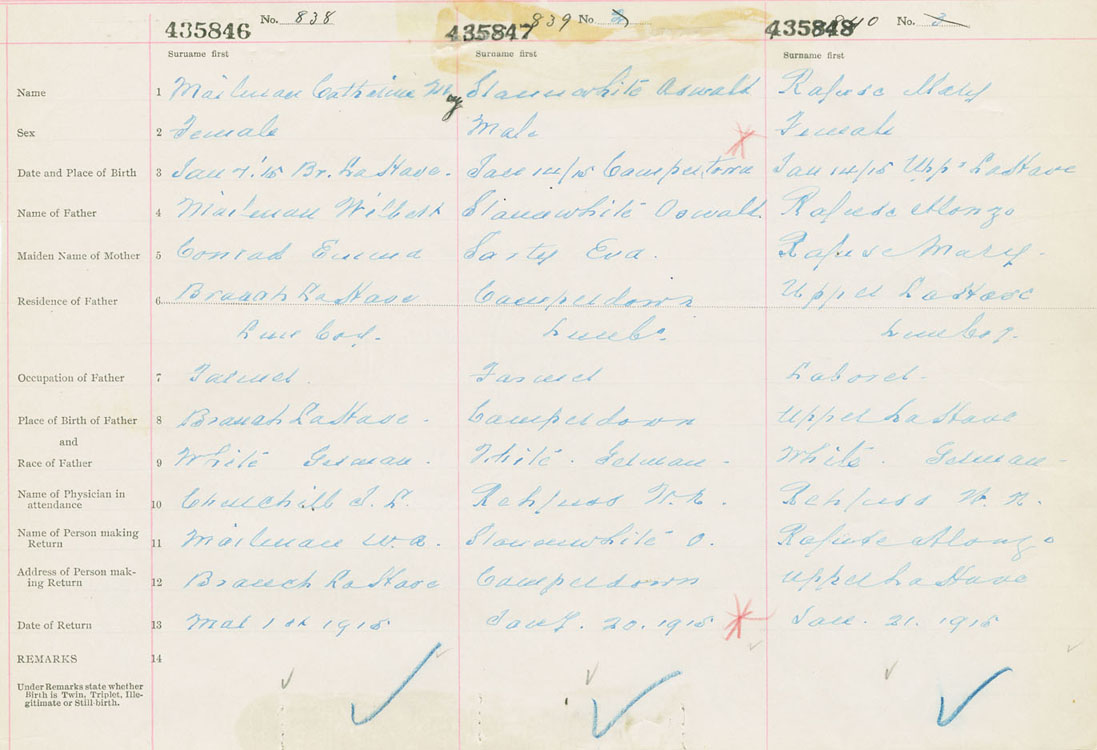 No. 838 839 No 2 840 No. 3
435846 435847 435848
Surname first Surname first Surname first
Name 1 Mailman Catherine May Stannwhite Oswald Rafuse Mary
Sex 2 Female Male Female
Date and Place of Birth 3 Jan 7.'15 Br. LaHave. Jan 14/15 Camperdown Jan 14/15 Uppr LaHave
Name of Father 4 Mailman Wilbert Stannwhite Oswald Rafuse Alonzo
Maiden Name of Mother 5 Conrad Emma Sarty Eva. Rafuse Mary.
Residence of Father 6 Branch LaHave Camperdown Upper LaHave
Lun Coy. Lun Co. Lun Coy.
Occupation of Father 7 Farmer. Farmer Laborer.
Place of Birth of Father 8 Branch LaHave. Camperdown Upper LaHave
and
Race of Father 9 White German. White. German- White. German-
Name of Physician in
attendance 10 Churchill J. L. Rehfuss W. N. Rehfuss W. N.
Name of Person making
Return 11 Mailman W. A. Stannwhite O. Rafuse Alonzo
Address of Person mak-
ing Return 12 Branch LaHave Camperdown Upper LaHave
Date of Return 13 Mar 1st 1915 Jany. 20. 1915 Jan. 21. 1915
REMARKS 14
Under Remarks state whether
Birth is Twin, Triplet, Ille-
gitimate or Still-birth.